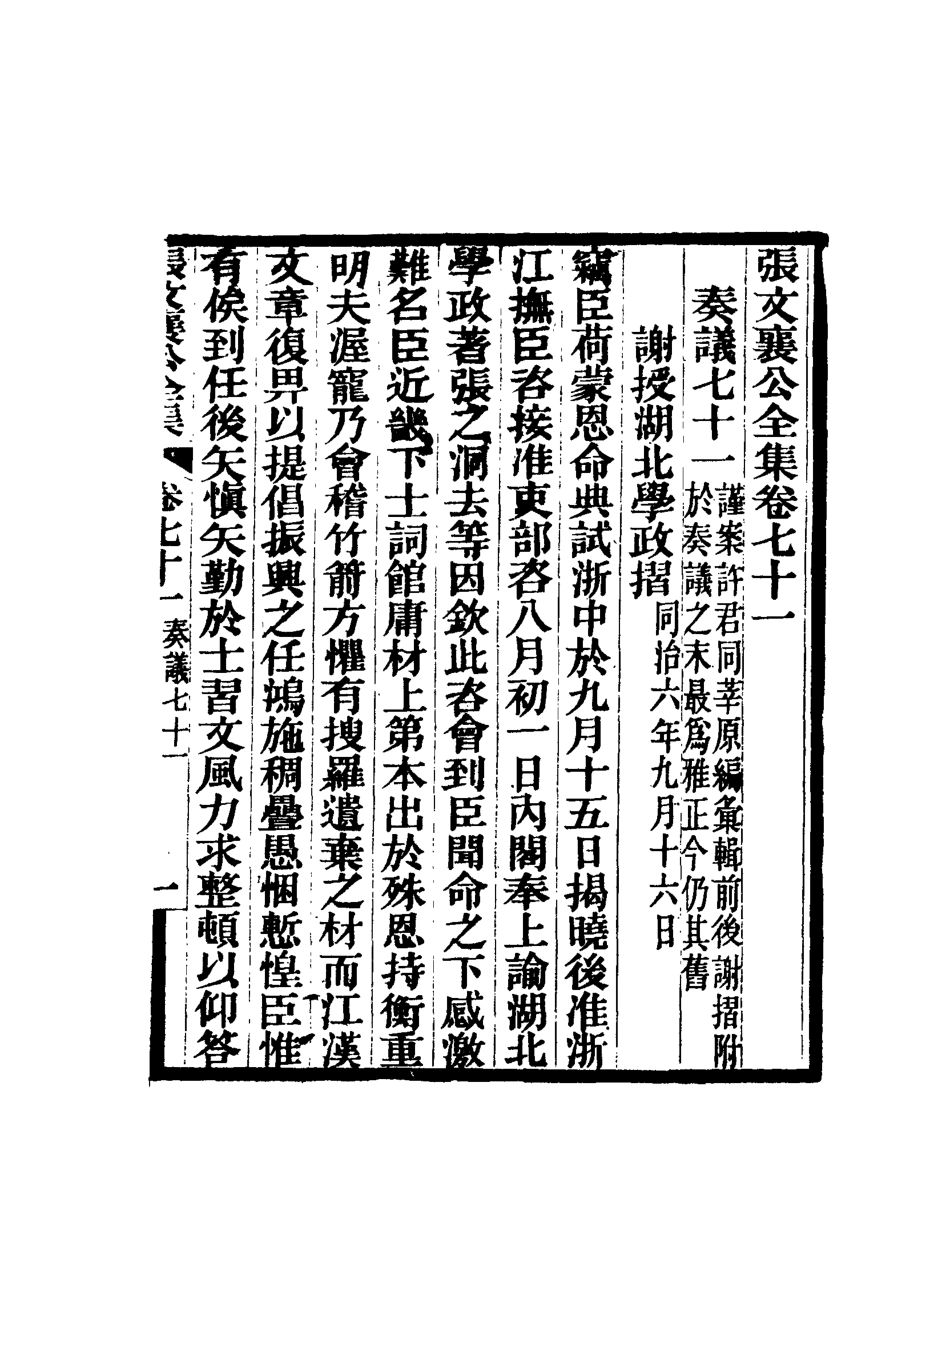 張文襄公全集卷七十一
奏議七十一
謹案許君同莘原編彙輯前後謝摺附
於奏議之末最爲雅正今仍其舊
謝授湖北學政摺 同治六年九月十六日
竊臣荷蒙恩命典試浙中於九月十五日揭曉後准浙
江撫臣咨接准吏部咨八月初一日內閣奉上諭湖北
學政著張之洞去等因欽此咨會到臣聞命之下感激
難名臣近畿下士詞館庸材上第本出於殊恩持衡重
明夫渥寵乃會稽竹箭方懼有搜羅遺棄之材而江漢
文章復畀以提倡振興之任鴻施稠疊愚悃慙惶臣惟
有俟到任後矢愼矢勤於士習文風力求整頓以仰答
張文襄公全集 卷七十一 奏議七十一 一